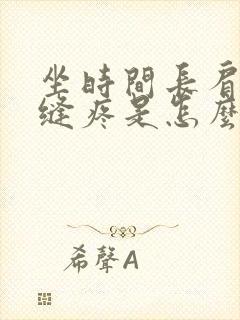 坐時間長肩
縫疼是怎麼
希聲A